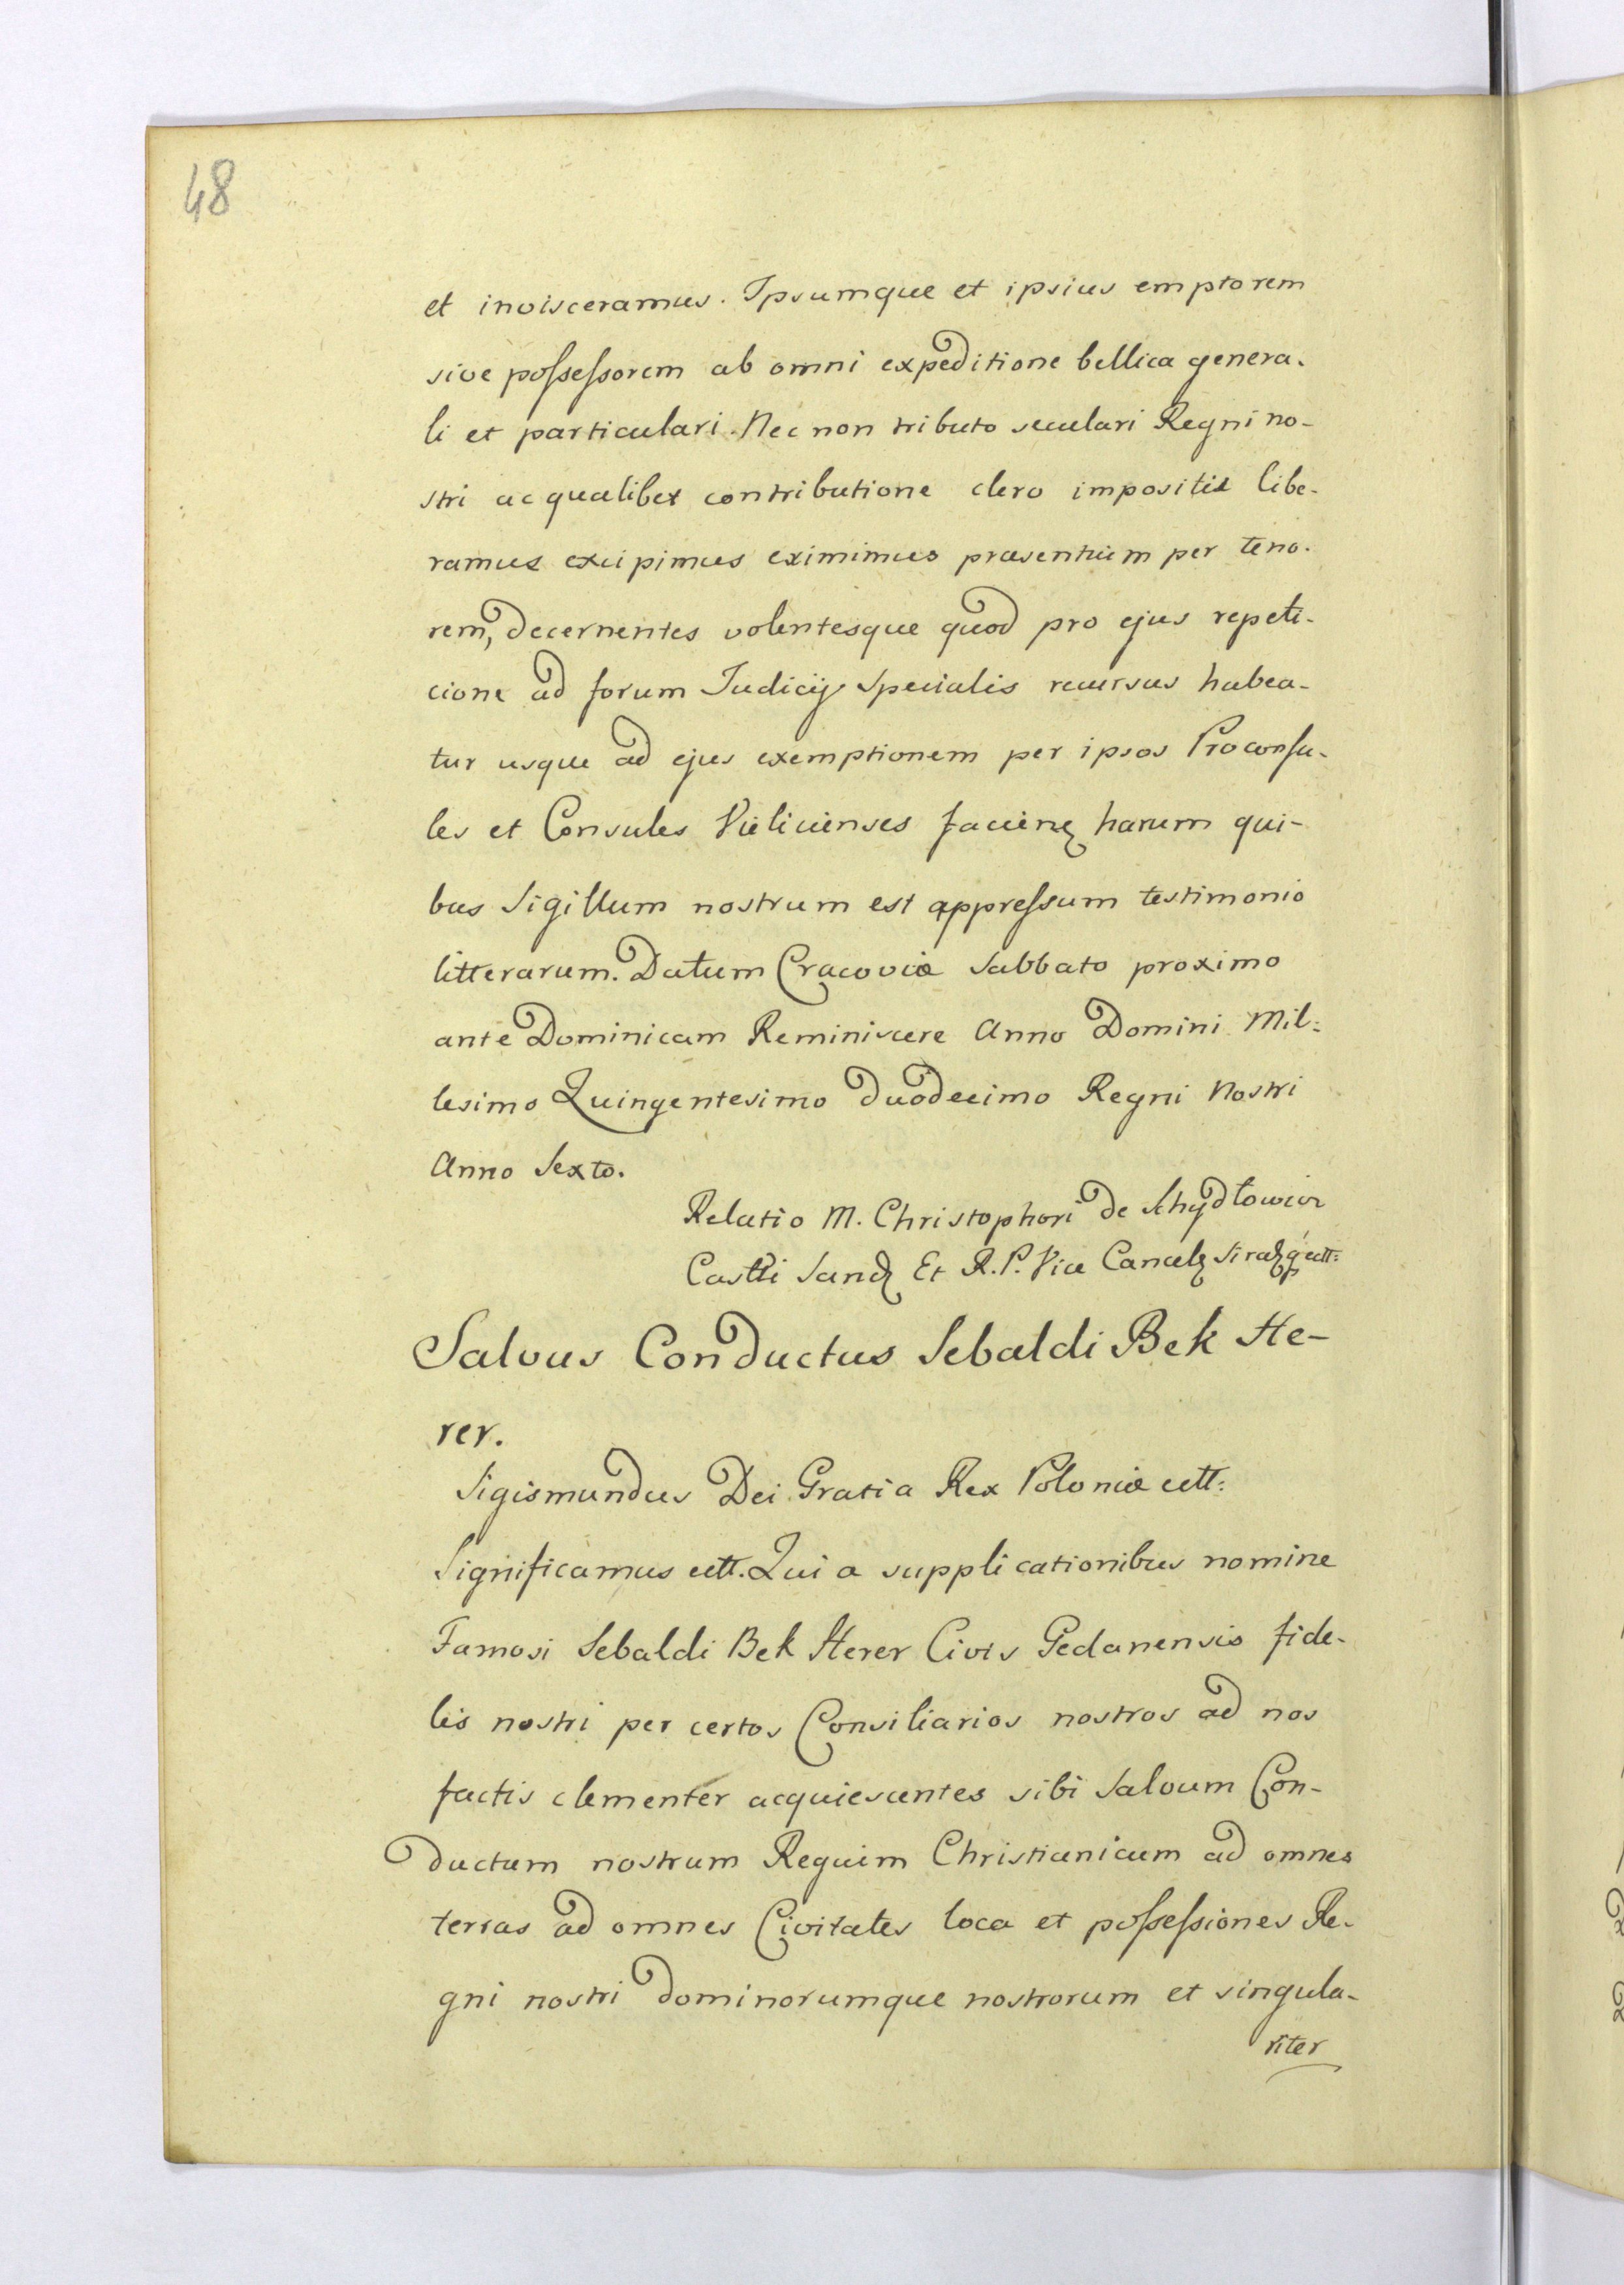 48
et invisceramus. Ipsumque et ipsius emptorem
sive possessorem ab omni expeditione bellica genera-
li et particulari. Nec non tributo seculari Regni no-
stri ac qualibet contributione clero impositis libe-
ramus excipimus eximimus præsentium per teno-
rem, decernentes volentesque quod pro ejus repeti-
cione ad forum Judicij Specialis recursus habea-
tur usque ad ejus exemptionem per ipsos Proconsu-
les et Consules Vielicienses faciend harum qui-
bus Sigillum nostrum est appressum testimonio
litterarum. Datum Cracoviæ Sabbato proximo
ante Dominicam Reminiscere Anno Domini Mil=
lesimo Quingentesimo duodecimo Regni Nostri
Anno Sexto.
Relatio M. Christophori de Schydłowicz
Castti Sand Et R. P. Vice Cancel Sirad cett:
Salvus Conductus Sebaldi Bek He-
rer.
Sigismundus Dei Gratia Rex Poloniæ cett:
Significamus cett. Quia supplicationibus nomine
Famosi Sebaldi Bek Herer Civis Gedanensis fide-
lis nostri per certos Consiliarios nostros ad nos
factis clementer acquiescentes sibi Salvum Con-
ductum nostrum Regium Christianicum ad omnes
terras ad omnes Civitates loca et possessiones Re-
gni nostri dominorumque nostrorum et singula-
riter